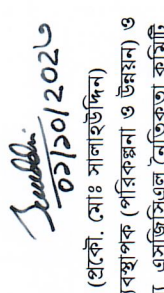 (প্রকৌ. মোঃ সালাহউদ্দিন)
বস্থাপক (পরিকল্পনা ও উন্নয়ন) ও
এসজিসিএল নৈতিকতা কমিটি,